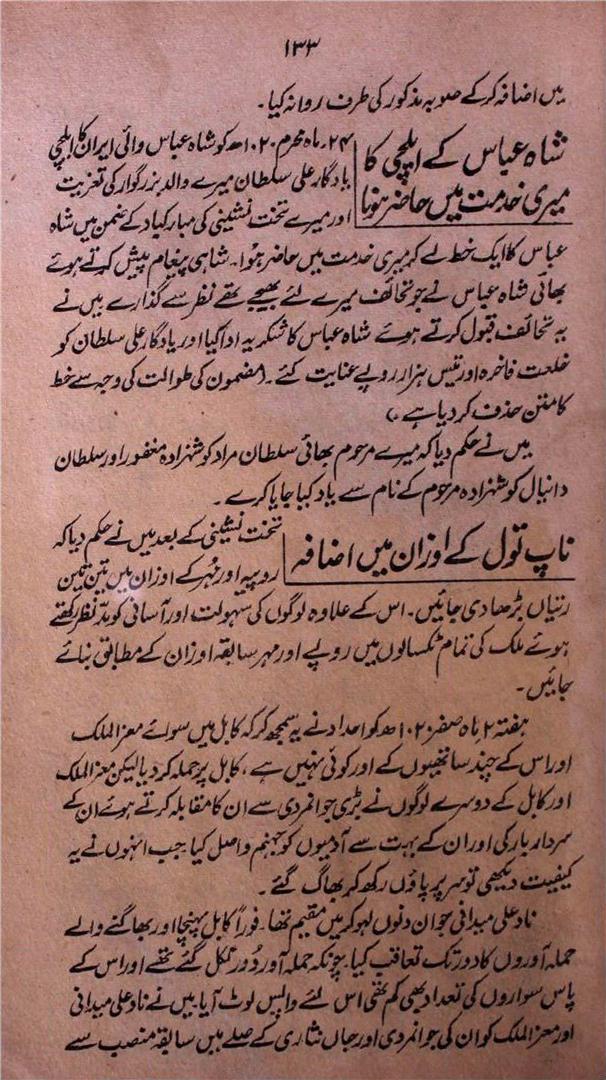 ۱۳۳
میں اضافہ کرکے صوبہ مذکور کی طرف روانہ کیا۔
شاہ عباس کے ایلچی کا
میری خدمت میں حاضر ہونا
۲۴۔ ماہ محرم ۱۰۲۰ھ کو شاہ عباس والئی ایران کا ایلچی
یادگار علی سلطان میرے والد بزرگوار کی تعزیت
اور میرے تخت نشینی کی مبارکباد کے ضمن میں شاہ
عباس کا ایک خط لے کر میری خدمت میں حاضر ہوا۔ شاہی پیغام پیش کرتے ہوئے
بھائی شاہ عباس نے جو تحائف میرے لئے بھیجے تھے نظر سے گذارے میں نے
یہ تحائف قبول کرتے ہوئے شاہ عباس کا شکریہ ادا کیا اور یادگار علی سلطان کو
خلعت فاخرہ اور تیس ہزار روپے عنایت کئے۔ (مضمون کی طوالت کی وجہ سے خط
کا متن حذف کر دیا ہے۔)
میں نے حکم دیا کہ میرے مرحوم بھائی سلطان مراد کو شہزادہ مغفور اور سلطان
دانیال کو شہزادہ مرحوم کے نام سے یاد کیا جایا کرے۔
ناپ تول کے اوزان میں اضافہ
تخت نشینی کے بعد میں نے حکم دیا کہ
روپیہ اور مُہر کے اوزان میں تین تین
رتیاں بڑھا دی جائیں۔ اس کے علاوہ لوگوں کی سہولت اور آسانی کو مدِّ نظر رکھتے
ہوئے ملک کی تمام ٹکسالوں میں روپے اور مہر سابقہ اوزان کے مطابق بنائے
جائیں۔
ہفتہ ۲ ماہ صفر ۱۰۲۰ھ کو احداد نے یہ سمجھ کر کہ کابل میں سوائے معز الملک
اور اس کے چند ساتھیوں کے اور کوئی نہیں ہے، کابل پر حملہ کر دیا لیکن معز الملک
اور کابل کے دوسرے لوگوں نے بڑی جوانمردی سے ان کا مقابلہ کرتے ہوئے ان کے
سردار بارکی اور ان کے بہت سے آدمیوں کو جہنم واصل کیا جب انہوں نے یہ
کیفیت دیکھی تو سر پر پاؤں رکھ کر بھاگ گئے۔
ناد علی میدانی جو ان دنوں لہوکر میں مقیم تھا۔ فوراً کابل پہنچا اور بھاگنے والے
حملہ آوروں کا دور تک تعاقب کیا۔ چونکہ حملہ آور دُور نکل گئے تھے اور اس کے
پاس سواروں کی تعداد بھی کم تھی اس لئے واپس لوٹ آیا۔ میں نے ناد علی میدانی
اور معز الملک کو ان کی جوانمردی اور جاں نثاری کے صلے میں سابقہ منصب سے